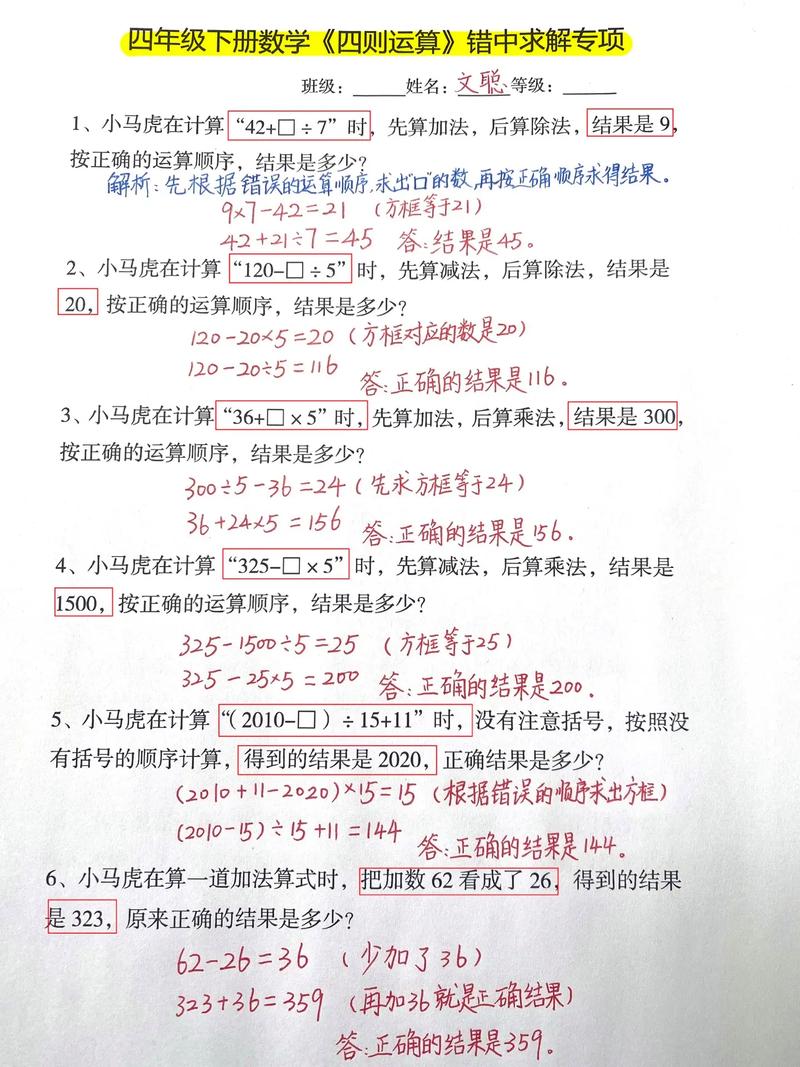 四年级下册数学《四则运算》错中求解专项
班级：______姓名：文聪 等级：______
1、小马虎在计算“42+□÷7”时，先算加法，后算除法，结果是 9，
按正确的运算顺序，结果是多少？
解析：先根据错误的运算顺序，求出“口”的数，再按正确顺序求得结果。
9×7-42=21 （方框等于21）
42+21÷7=45 答：结果是45。
2、小马虎在计算“120-□÷5”时，先算减法，后算除法，结果是
20，按正确的运算顺序，结果是多少？
120-20×5=20（方框对应的数是20）
120-20÷5=116
答：正确的结果是116。
3、小马虎在计算“36+□×5”时，先算加法，后算乘法，结果是 300，
按正确的运算顺序，结果是多少？
300÷5-36=24（先求方框等于24）
36+24×5=156
答：正确的结果是156．
4、小马虎在计算“325-□×5”时，先算减法，后算乘法，结果是
1500，按正确的运算顺序，结果是多少？
325-1500÷5=25 （方框等于25）
325-25×5=200 答：正确的结果是200．
5、小马虎在计算“（2010-□）÷15+11”时，没有注意括号，按照没
有括号的顺序计算，得到的结果是 2020，正确结果是多少？
(2010+11-2020)×15=15 （根据错误的顺序求出方框）
(2010-15)÷15+11=144
答：正确的结果是144。
6、小马虎在算一道加法算式时，把加数 62 看成了 26，得到的结果
是 323，原来正确的结果是多少？
62-26=36 （少加了36）
323+36=359 （再加36就是正确结果）
答：正确的结果是359。